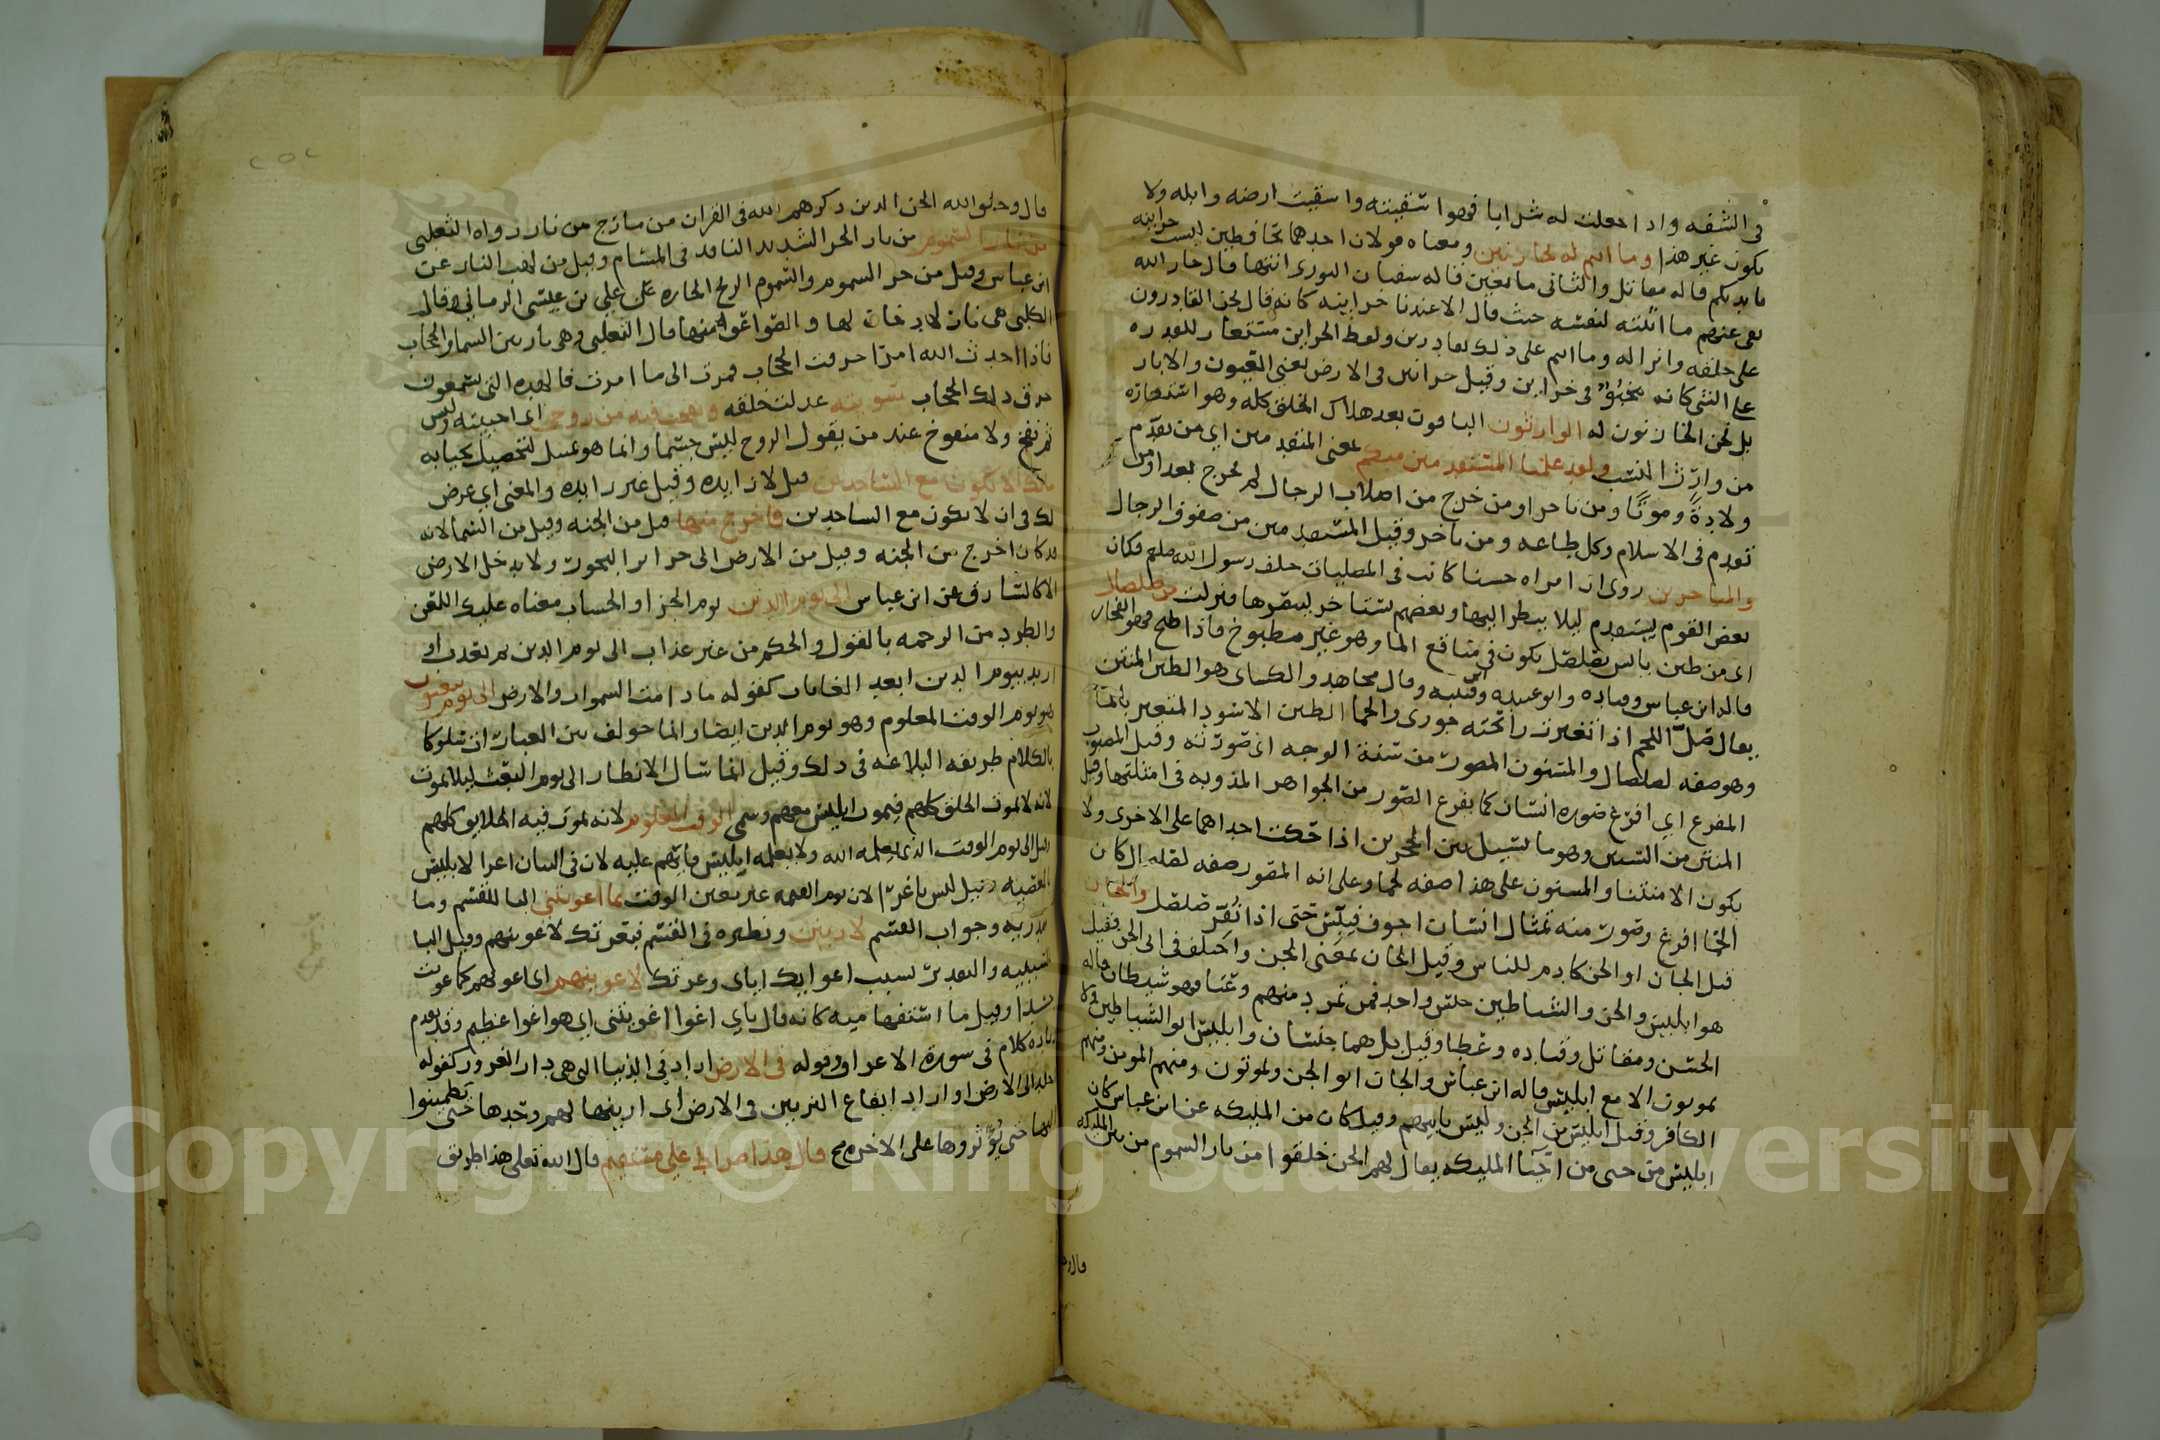 في الشفه واذا جعلت له شرابا فهو اسقيته واسقيت ارضه وابله ولا
يكون غير هذا وما انتم له بخازنين ومعناه قولان احدهما بحافظين ليست خزاينه
بايديكم قاله مقاتل والثاني مانعين قاله سفيان الثوري انتهى قال جار الله
نفى عنهم ما اثبته لنفسه حيث قال الا عندنا خزاينه كانه قال نحن القادرون
على خلقه وانزاله وما انتم على ذلك بقادرين ولفظ الخزاين مستعار للقدره
على الشي كانه مخبوٌّ في خزاين وقيل خزائن في الارض يعني العيون والابار
بل نحن الخازنون له الوارثون الباقون بعد هلاك الخلق كله وهو استعاره
من وارث الميت ولقد علمنا المستقدمين منكم بمعنى المتقدمين اي من تقدم
ولادةً وموتًا ومن تاخر او من خرج من اصلاب الرجال ومن لم يخرج بعد او من
تقدم في الاسلام وكل طاعه ومن تاخر وقيل المستقدمين من صفوف الرجال
والمتاخرين روي ان امراه حسنا كانت في المصليات خلف رسول الله صلعم فكان
بعض القوم يستقدم ليلا ينظر اليها وبعضهم يستاخر ليبصرها فنزلت من صلصال
اي من طين يابس يصلصل يكون في مناقع الما وهو غير مطبوخ فاذا طبخ فهو الفخار
قاله ابن عباس وقتاده وابو عبيده وقتيبه وقال مجاهد والكساي هو الطين المنتن
يقال صلَّ اللحم اذا تغيرت رائحته جوري والحمأ الطين الاسود المتغير بالماء
وهو صفه لصلصال والمسنون المصور من سنة الوجه اي صورته وقيل المصبوب
المفرغ اي افرغ صوره انسان كما يفرغ الصور من الجواهر المذوبه في امثلتها وقيل
المنتن من السنين وهو ما يسيل بين الحجرين اذا حكت احداهما على الاخرى ولا
يكون الا منتنا والمسنون على هذا صفه لحما وعلى انه المصور صفه لصلصال كان
الحما افرغ وصور منه تمثال انسان اجوف فيبس حتى اذا نُقر صلصل والجان
قيل الجان ابو الجن كادم للناس وقيل الجان بمعنى الجن واختلف في ابي الجن فقيل
هو ابليس والجن والشياطين جنس واحد فمن تمرد منهم وعتا فهو شيطان قاله
الحسن ومقاتل وقتاده وعطا وقيل بل هما جنسان وابليس ابو الشياطين ولا
يموتون الا مع ابليس قاله ابن عباس والجان ابو الجن ويموتون ومنهم المومن ومنهم
الكافر وقيل ابليس من الجن وليس بابيهم وقيل كان من المليكه عن ابن عباس كان
ابليس من حي من احيآ المليكه يقال لهم الجن خلقوا من نار السموم من بين المليكه
قال و
٢٥٢
قال وخلق الله الجن الذين ذكرهم الله في القران من مارج من نار رواه الثعلبي
من نار السموم من نار الحر الشديد النافذ في المسام وقيل من لهب النار عن
ابن عباس وقيل من حر السموم والسموم الريح الحاره عن علي بن عيسى الرماني وقال
الكلبي هي نار لا دخان لها والصواعق منها قال الثعلبي وهي نار بين السما والحجاب
فاذا احدث الله امرا خرقت الحجاب فمرت الى ما امرت فالهده التي تسمعون
خرق ذلك الحجاب سويته عدلت خلقه ونفخت فيه من روحي اي احييته وليس
ثم نفخ ولا منفوخ عند من يقول الروح ليس جسما وانما هو تمثيل لتحصيل حياته
مالك الا تكون مع الساجدين قيل لا زايده وقيل غير زايده والمعنى اي غرض
لك في ان لا تكون مع الساجدين فاخرج منها قيل من الجنه وقيل من السما لانه
قد كان اخرج من الجنه وقيل من الارض الى جزاير البحور ولا يدخل الارض
الا كالسارق عن ابن عباس الى يوم الدين يوم الجزا والحساب معناه عليك اللعن
والطرد من الرحمه بالقول والحكم من غير عذاب الى يوم الدين ثم تعذب او
اريد بيوم الدين ابعد الغايات كقوله ما دامت السموات والارض الى يوم يبعثون
هو يوم الوقت المعلوم وهو يوم الدين ايضا وانما خولف بين العبارات سلوكا
بالكلام طريقه البلاغه في ذلك وقيل انما سال الانظار الى يوم البعث ليلا يموت
لانه لا يموت الخلق كلهم فيموت ابليس معهم وسمي الوقت المعلوم لانه يموت فيه الخلايق كلهم
وقيل الى يوم الوقت الذي يعلمه الله ولا يعلمه ابليس فابهم عليه لان في البيان اغرا لابليس
بالمعصيه وقيل ليس باغرا لان يوم القيمه غير معين الوقت بما اغويتني البا للقسم وما
مصدريه وجواب القسم لازينن ونظيره في القسم فبعزتك لاغوينهم وقيل البا
للسببيه والتقدير بسبب اغوايك اياي وعزتك لاغوينهم اي اغويهم كما غويت
وقيل ما استفهاميه كانه قال باي اغوا اغويتني اي هو اغوا عظيم وقد تقدم
زيادة كلام في سورة الاعراف وقوله في الارض اراد في الدنيا التي هي دار الغرور كقوله
اخلد الى الارض او اراد ايقاع التزيين في الارض اي ازينها لهم وحدها حتى يطمينوا
اليها حتى يؤثروها على الاخره مح قال هذا صراط علي مستقيم قال الله تعلى هذا طريق
Copyright © King Saud University